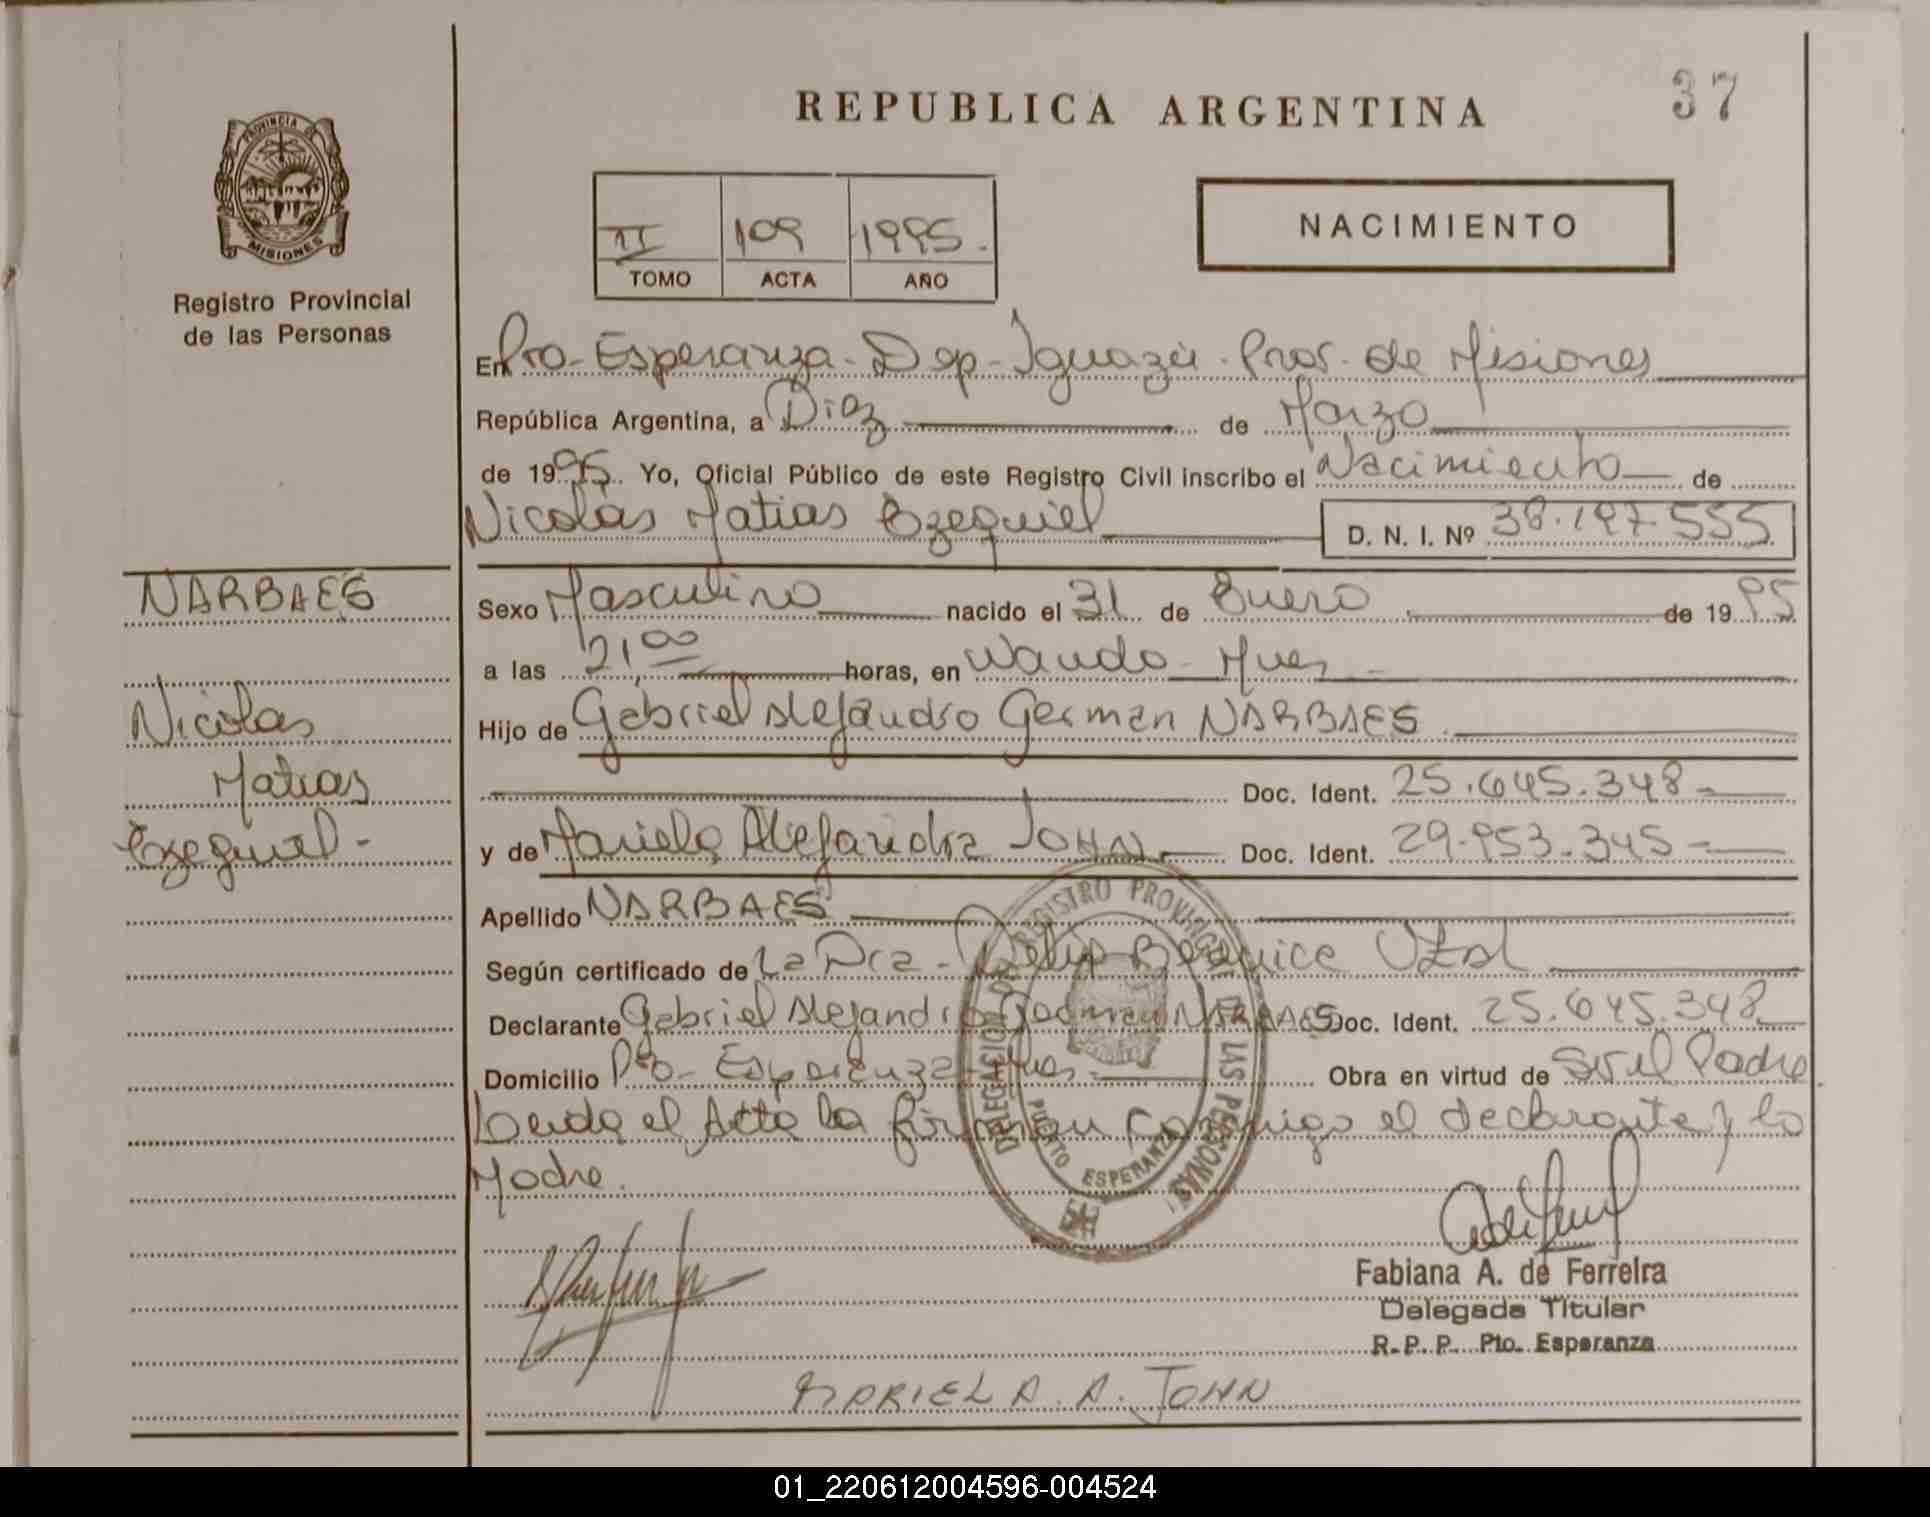 37
REPUBLICA ARGENTINA
PROVINCIA DE
MISIONES
Registro Provincial
de las Personas
II 109 1995.
TOMO ACTA AÑO
NACIMIENTO
En Pto- Esperanza- Dep- Iguazú- Prov. de Misiones
República Argentina, a Diez de Marzo
de 1995. Yo, Oficial Público de este Registro Civil inscribo el Nacimiento de
Nicolas Matias Ezequiel D. N. I. Nº 38.197.555
NARBAES
Nicolas
Matias
Ezequiel-
Sexo Masculino nacido el 31 de Enero de 1995
a las 21,00 horas, en Wanda- Mnes-
Hijo de Gabriel Alejandro German NARBAES
Doc. Ident. 25.645.348-
y de Mariela Alejandra JOHN- Doc. Ident. 29.953.345-
Apellido NARBAES
Según certificado de La Dra- Berenice
Declarante Gabriel Alejandro German NARBAES Doc. Ident. 25.645.348
Domicilio Pto- Esperanza- Mnes- Obra en virtud de Ser el Padre
Leida el Acta la firman conmigo el declarante y la
Madre.
DELEGACION REGISTRO PROVINCIAL DE LAS PERSONAS
PUERTO ESPERANZA
Fabiana A. de Ferreira
Delegada Titular
R.P.P. Pto. Esperanza
MARIELA. A. JOHN
01_220612004596-004524